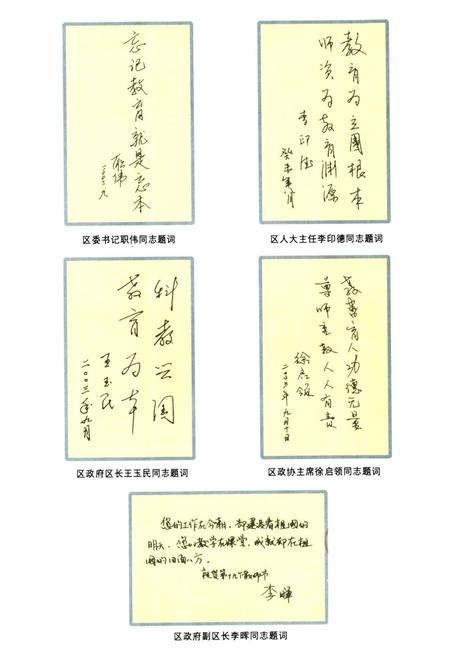 忘记教育就是忘本
职伟
二〇〇三.九
区委书记职伟同志题词
教育为立国根本
师资为教育渊源
李印德
癸未年八月
区人大主任李印德同志题词
科教兴国
教育为本
王玉民
二〇〇三年九月
区政府区长王玉民同志题词
教书育人功德无量
尊师重教人人有责
徐启领
二〇〇三年九月十日
区政协主席徐启领同志题词
您的工作在今朝，却建设着祖国的
明天。您的教学在课堂，成就却在祖
国的四面八方。
祝贺第十九个教师节
李晖
区政府副区长李晖同志题词